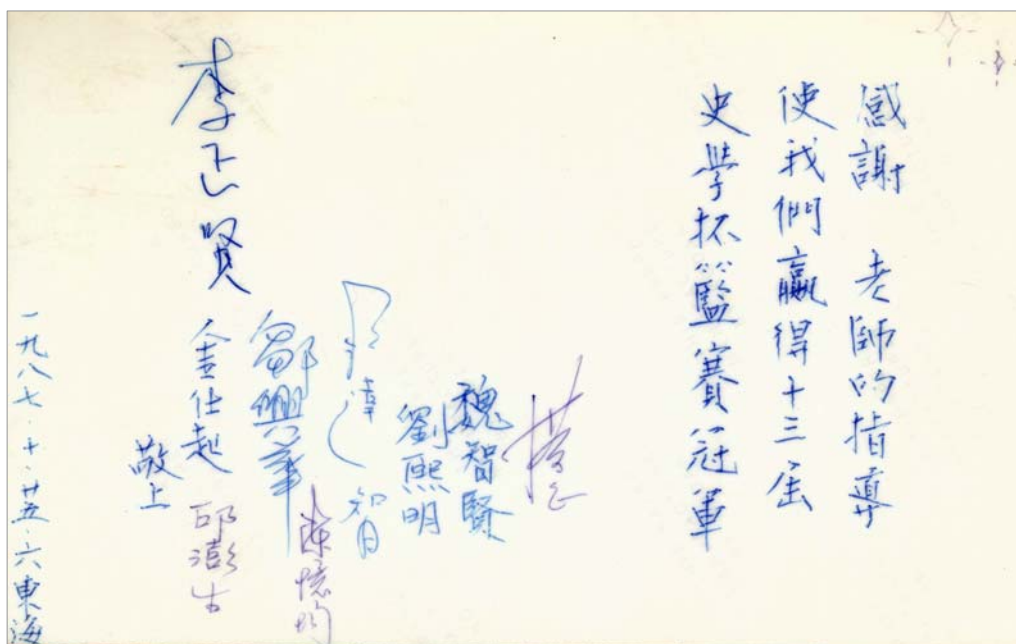 感謝　老師的指導
使我們贏得十三屆
史學杯籃賽冠軍
魏智賢
劉熙明
鄒興華
李正賢
金仕起
邱澎生
敬上
一九八七．十．廿五．六東海